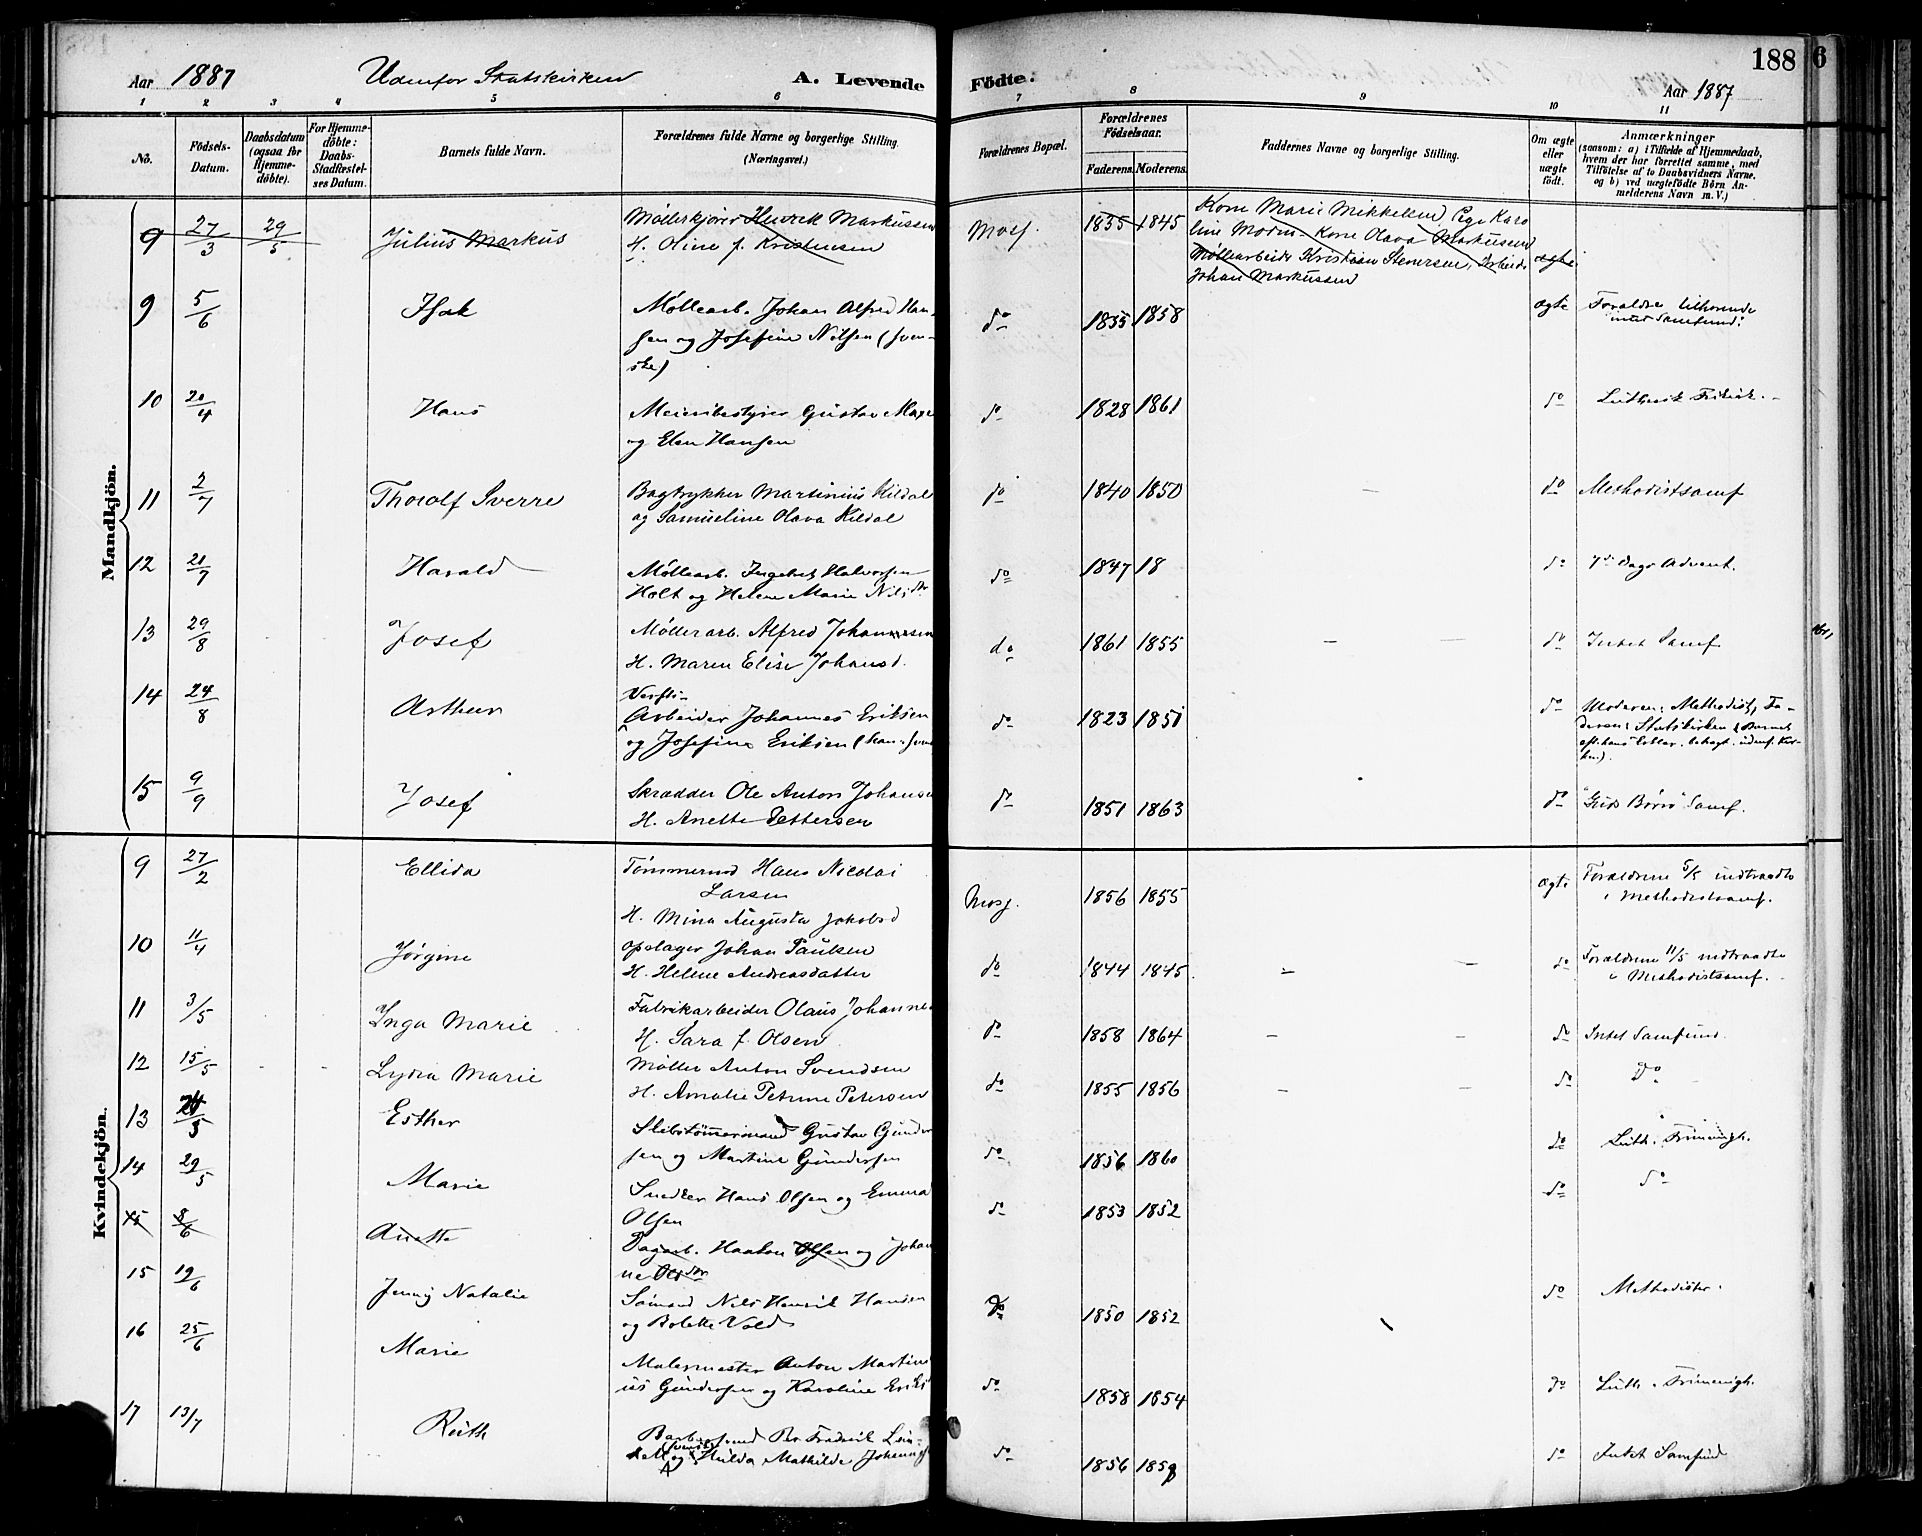 188
6
Aar 1887 Udenfor Statskirken A. Levende Födte. Aar 1887
1 2 3 4 5 6 7 8 9 10 11
No.
Födsels-Datum.
Daabsdatum (ogsaa for Hjemmedöbte).
For Hjemmedöbte: Daabs-Stadfæstelses Datum.
Barnets fulde Navn.
Forældrenes fulde Navne og borgerlige Stilling. (Næringsvei.)
Forældrenes Bopæl.
Forældrenes Födselsaar.
Faderens. Moderens.
Faddernes Navne og borgerlige Stilling.
Om ægte eller uægte födt.
Anmærkninger
(saasom: a) i Tilfælde af Hjemmedaab, hvem der har forrettet samme, med Tilföielse af to Daabsvidners Navne, og b) ved uægtefödte Börn Anmelderens Navn m. V.)
Mandkjön.
9 27/3 29/5 Julius Markus Møllerkjører Henrik Markussen
H. Oline f. Kristensen Moss. 1835 1845 Kone Marie Mikkelsen, Pige Karoline Kone Olava Markussen
Møllearbeider Kristian Stenersen, Arbeider
Johan Markussen ægte
9 5/6 Isak Møllearb. Johan Alfred Hansen og Josefine Nilsen (svenske) do 1855 1858 ægte Forældre tilhørende intet Samfund.
10 20/4 Hans Meieribestyrer Gustav
og Elen Hansen do 1828 1861 do Luthersk Frikirk.
11 2/7 Thorolf Sverre Bogtrykker Martinius Kildal
og Samueline Olava Kildal do 1840 1850 — do Methodistsamf
12 21/7 Harald Møllearb. Ingebret Halvorsen
Holt og Helene Marie Nilsdtr do 1847 18 do 7de Dags Advent.
13 29/8 Josef Møllerarb. Alfred Johannesen
H. Maren Elise Johansd. do 1861 1855 — — do Intet Samf
14 24/8 Arthur Verfts-
Arbeider Johannes Eriksen
og Josefine Eriksen do 1823 1851 do Moderen: Methodist, Faderen: Statskirken
15 9/9 Josef Skrædder Ole Anton Johansen
H. Anette Pettersen do 1851 1863 do "Guds Børns" Samf.
Kvindekjön.
9 27/2 Ellida Tømmermd Hans Nicolai
Larsen
H. Mina Augusta Jakobsd Moss. 1856 1855 ægte Forældrene 5/5 indtraadte
i Methodistsamf.
10 11/4 Jørgine Oplager Johan Paulsen
H. Helene Andreasdatter do 1844 1845 — — do Forældrene 11/5 indtraadte
i Methodistsamf.
11 3/5 Inga Marie Fabrikarbeider Olaus Johannes
H. Sara f. Olsen do 1858 1864 — — do Intet Samfund.
12 15/5 Lydia Marie Møller Anton Svendsen
H. Amalie Petrine Petersen do 1855 1856 — — do Do
13 Esther Skibstømmermand Gustav Gundersen og Martine Gundersen do 1856 1860 do Luth. Frimenigh.
14 29/5 Marie Snedker Hans Olsen og Emma
Olsen do 1853 1852 do do
15 8/6 Anette Dagarb. Haakon Olsen og Johanne Olsdtr
15 19/6 Jenny Natalie Sømand Nils Henrik Hansen
og Bolette Vold do 1850 1852 do Methodister.
16 25/6 Marie Malermester Anton Martinius Gundersen og Karoline do 1858 1854 do Luth. Frimenigh.
17 13/7 Ruth Per Fredrik
og Hulda Mathilde do 1856 1859 do Intet Samfund